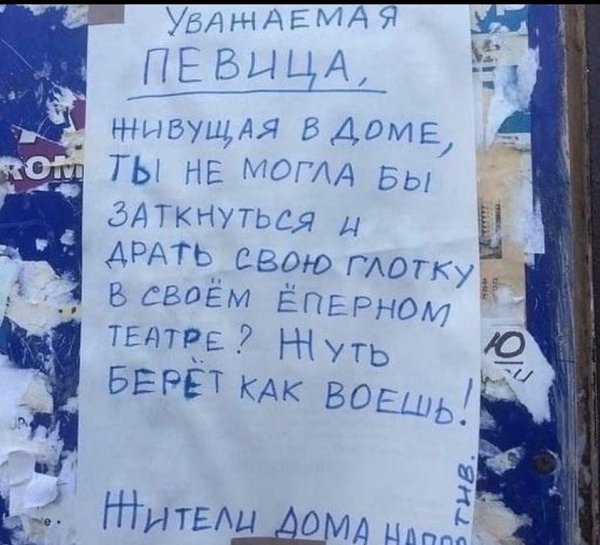 УВАЖАЕМАЯ
ПЕВИЦА,
ЖИВУЩАЯ В ДОМЕ,
ТЫ НЕ МОГЛА БЫ
ЗАТКНУТЬСЯ И
ДРАТЬ СВОЮ ГЛОТКУ
В СВОЁМ ЁПЕРНОМ
ТЕАТРЕ? ЖУТЬ
БЕРЁТ КАК ВОЕШЬ!
ЖИТЕЛИ ДОМА НАПРОТИВ.
Ю